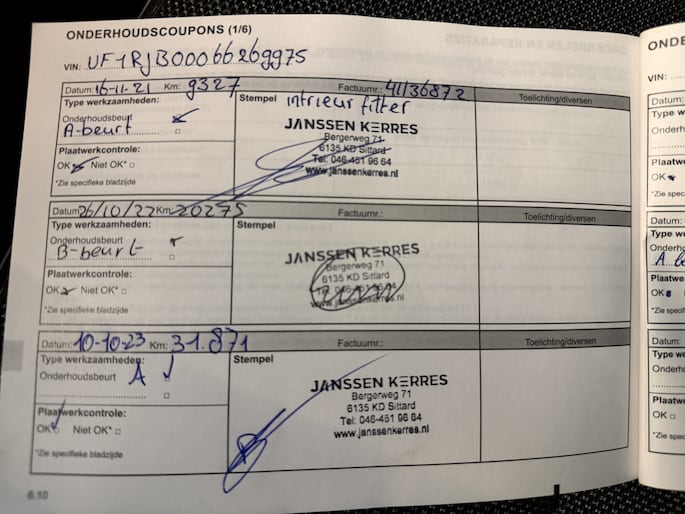 ONDERHOUDSCOUPONS (1/6)
VIN: UF1RJB00066269975
Datum: 16-11-21 Km: 9327 Factuurnr.: 41136872 Toelichting/diversen
Type werkzaamheden: Stempel intrieur filter
Onderhoudsbeurt
A-beurt
JANSSEN KERRES
Bergerweg 71
6135 KD Sittard
Tel: 046-451 96 64
www.janssenkerres.nl
Plaatwerkcontrole:
OK Niet OK*
*Zie specifieke bladzijde
Datum: 26/10/22 Km: 20275 Factuurnr.: Toelichting/diversen
Type werkzaamheden: Stempel
Onderhoudsbeurt
B-beurt
JANSSEN KERRES
Bergerweg 71
6135 KD Sittard
Tel: 046-451 96 64
www.janssenkerres.nl
Plaatwerkcontrole:
OK Niet OK*
*Zie specifieke bladzijde
Datum: 10-10-23 Km: 31.871 Factuurnr.: Toelichting/diversen
Type werkzaamheden: Stempel
Onderhoudsbeurt A
JANSSEN KERRES
Bergerweg 71
6135 KD Sittard
Tel: 046-451 96 64
www.janssenkerres.nl
Plaatwerkcontrole:
OK Niet OK*
*Zie specifieke bladzijde
6.10
OND
VIN:
Datum:
Type w
Onderh
Plaatwe
OK
*Zie spec
Datum:
Type we
Onderho
A be
Plaatwe
OK
*Zie spec
Datum:
Type w
Onderh
Plaatw
OK
*Zie spec